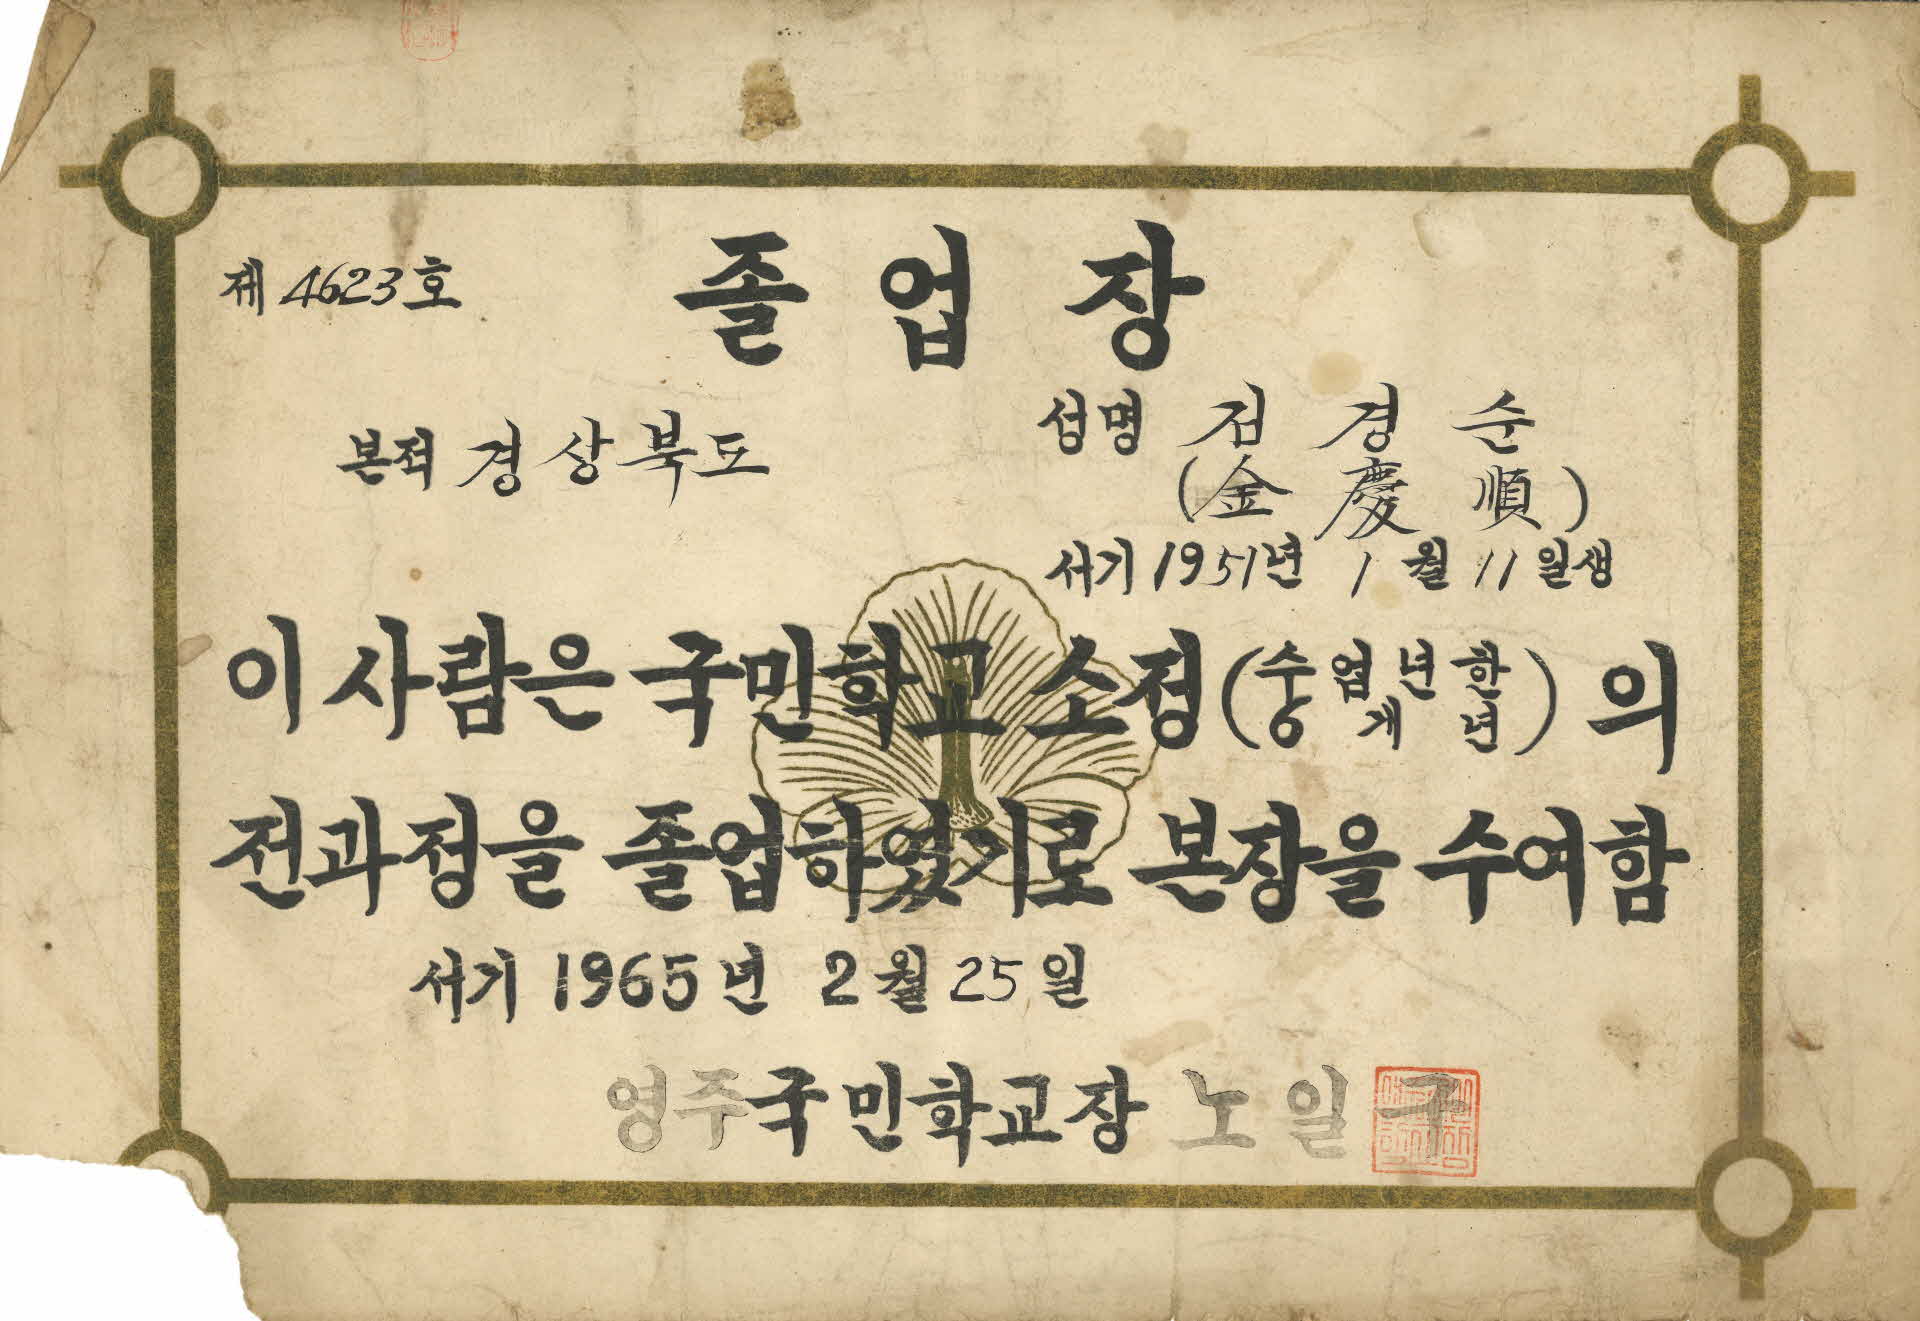 제 4623 호
졸업장
본적 경상북도
성명 김경순
(金慶順)
서기 1951년 1월 11일생
이 사람은 국민학교 소정(수업년한
개년)의
전과정을 졸업하였기로 본장을 수여함
서기 1965년 2월 25일
영주국민학교장 노일구